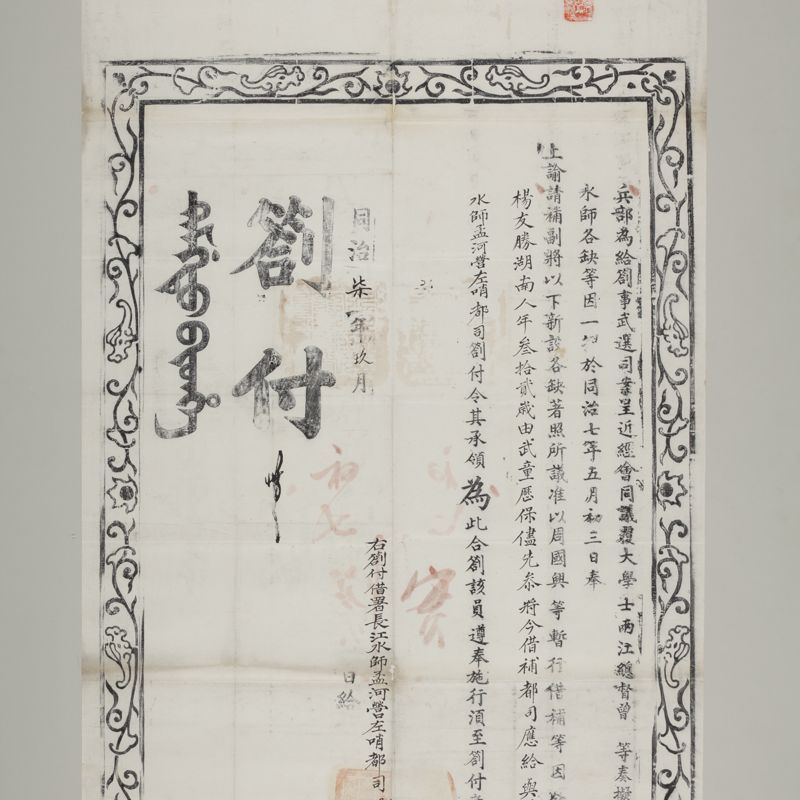 兵部為給劄事武選司案呈近經會同議覆大學士兩江總督曾 等奏擬
水師各缺等因一於同治七年五月初三日奉
上諭請補副將以下新設各缺著照所議准以周國興等暫行借補等因
楊友勝湖南人年叁拾貳歲由武童歷保儘先叅將今借補都司應給與
水師孟河營左哨都司劄付令其承領為此合劄該員遵奉施行須至劄付
右劄付借署長江水師孟河營左哨都司
同治柒年玖月
初七
日給
劄付